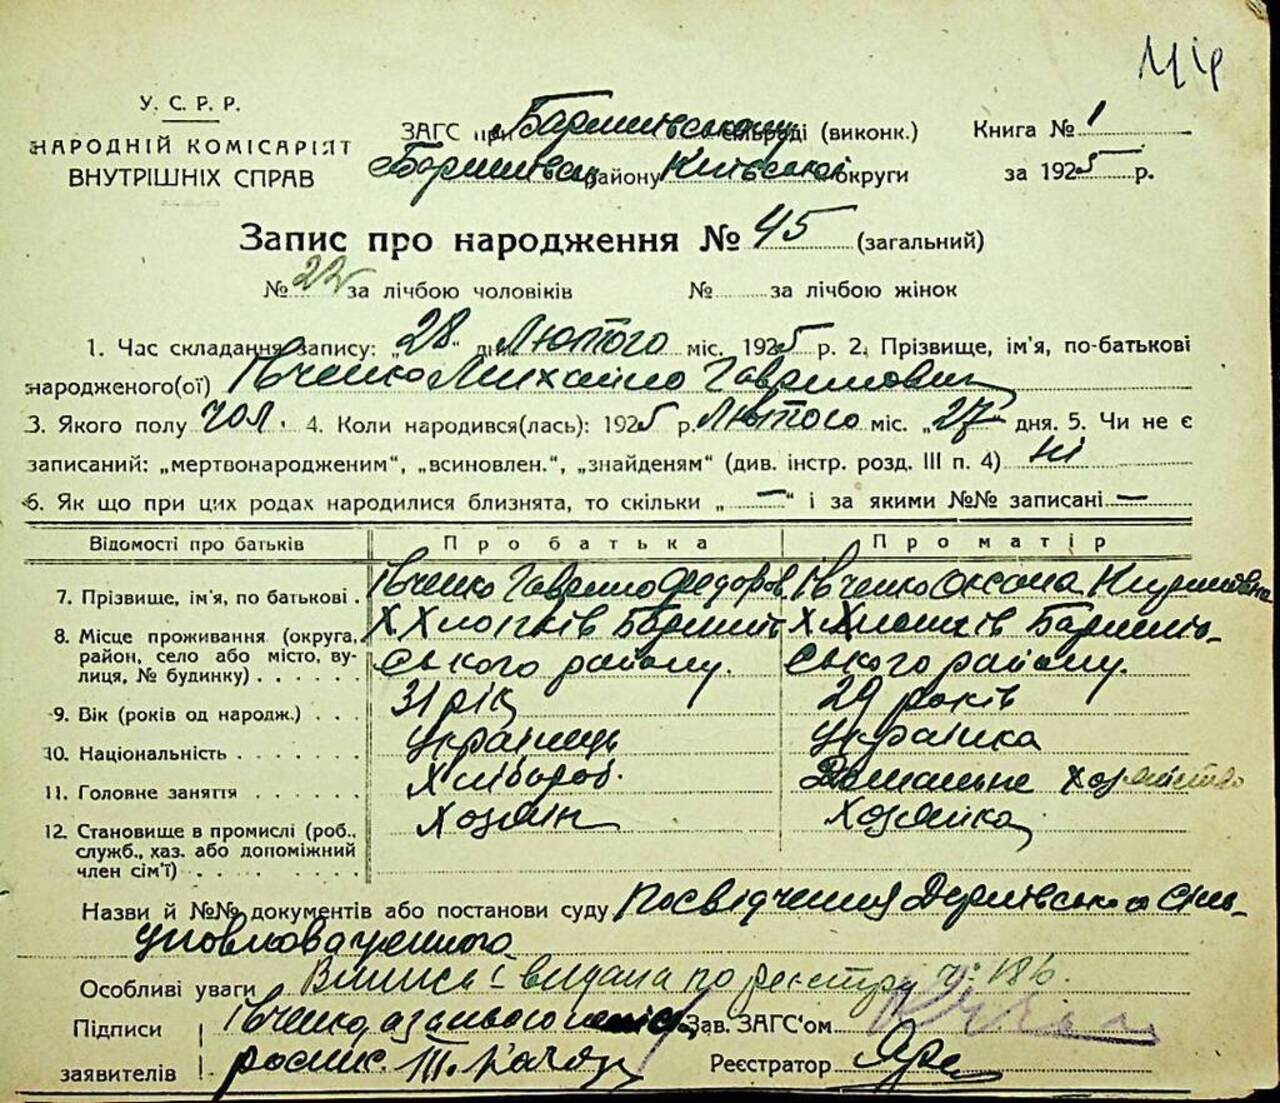 У. С. Р. Р.
НАРОДНІЙ КОМІСАРІЯТ
ВНУТРІШНІХ СПРАВ
ЗАГС при Баришівському сільраді (виконк.)
Баришівськ району Київської округи
Книга № 1
за 1925 р.
Запис про народження № 45 (загальний)
№ 22 за лічбою чоловіків № за лічбою жінок
1. Час складання запису: „28" дня Лютого міс. 1925 р. 2. Прізвище, ім'я, по-батькові
народженого(ої) Івченко Михайло Гаврилович
3. Якого полу чол. 4. Коли народився(лась): 1925 р. Лютого міс. „27" дня. 5. Чи не є
записаний: „мертвонародженим", „всиновлен.", „знайденям" (див. інстр. розд. III п. 4) ні
6. Як що при цих родах народилися близнята, то скільки „ — " і за якими №№ записані —
Відомості про батьків Про батька Про матір
7. Прізвище, ім'я, по батькові . Івченко Гаврило Федоров. Івченко Оксана Кирилівна
8. Місце проживання (округа, Х Хлопків Баришів Х Хлопків Баришів-
район, село або місто, ву- ського району. ського району.
лиця, № будинку) . . . . . .
9. Вік (років од народж.) . . . 31 рік 29 років
10. Національність . . . . . . . українець українка
11. Головне заняття . . . . . . Хлібороб. Домашне хозяйство
12. Становище в промислі (роб., Хозяїн Хозяйка
служб., хаз. або допоміжний
член сім'ї) . . . . . . . .
Назви й №№ документів або постанови суду Посвідчення Сіль-
уповноваженного
Особливі уваги Випись видана по реєстру № 186.
Підписи Івченко а за нього Зав. ЗАГС'ом
заявителів роспис. Реєстратор